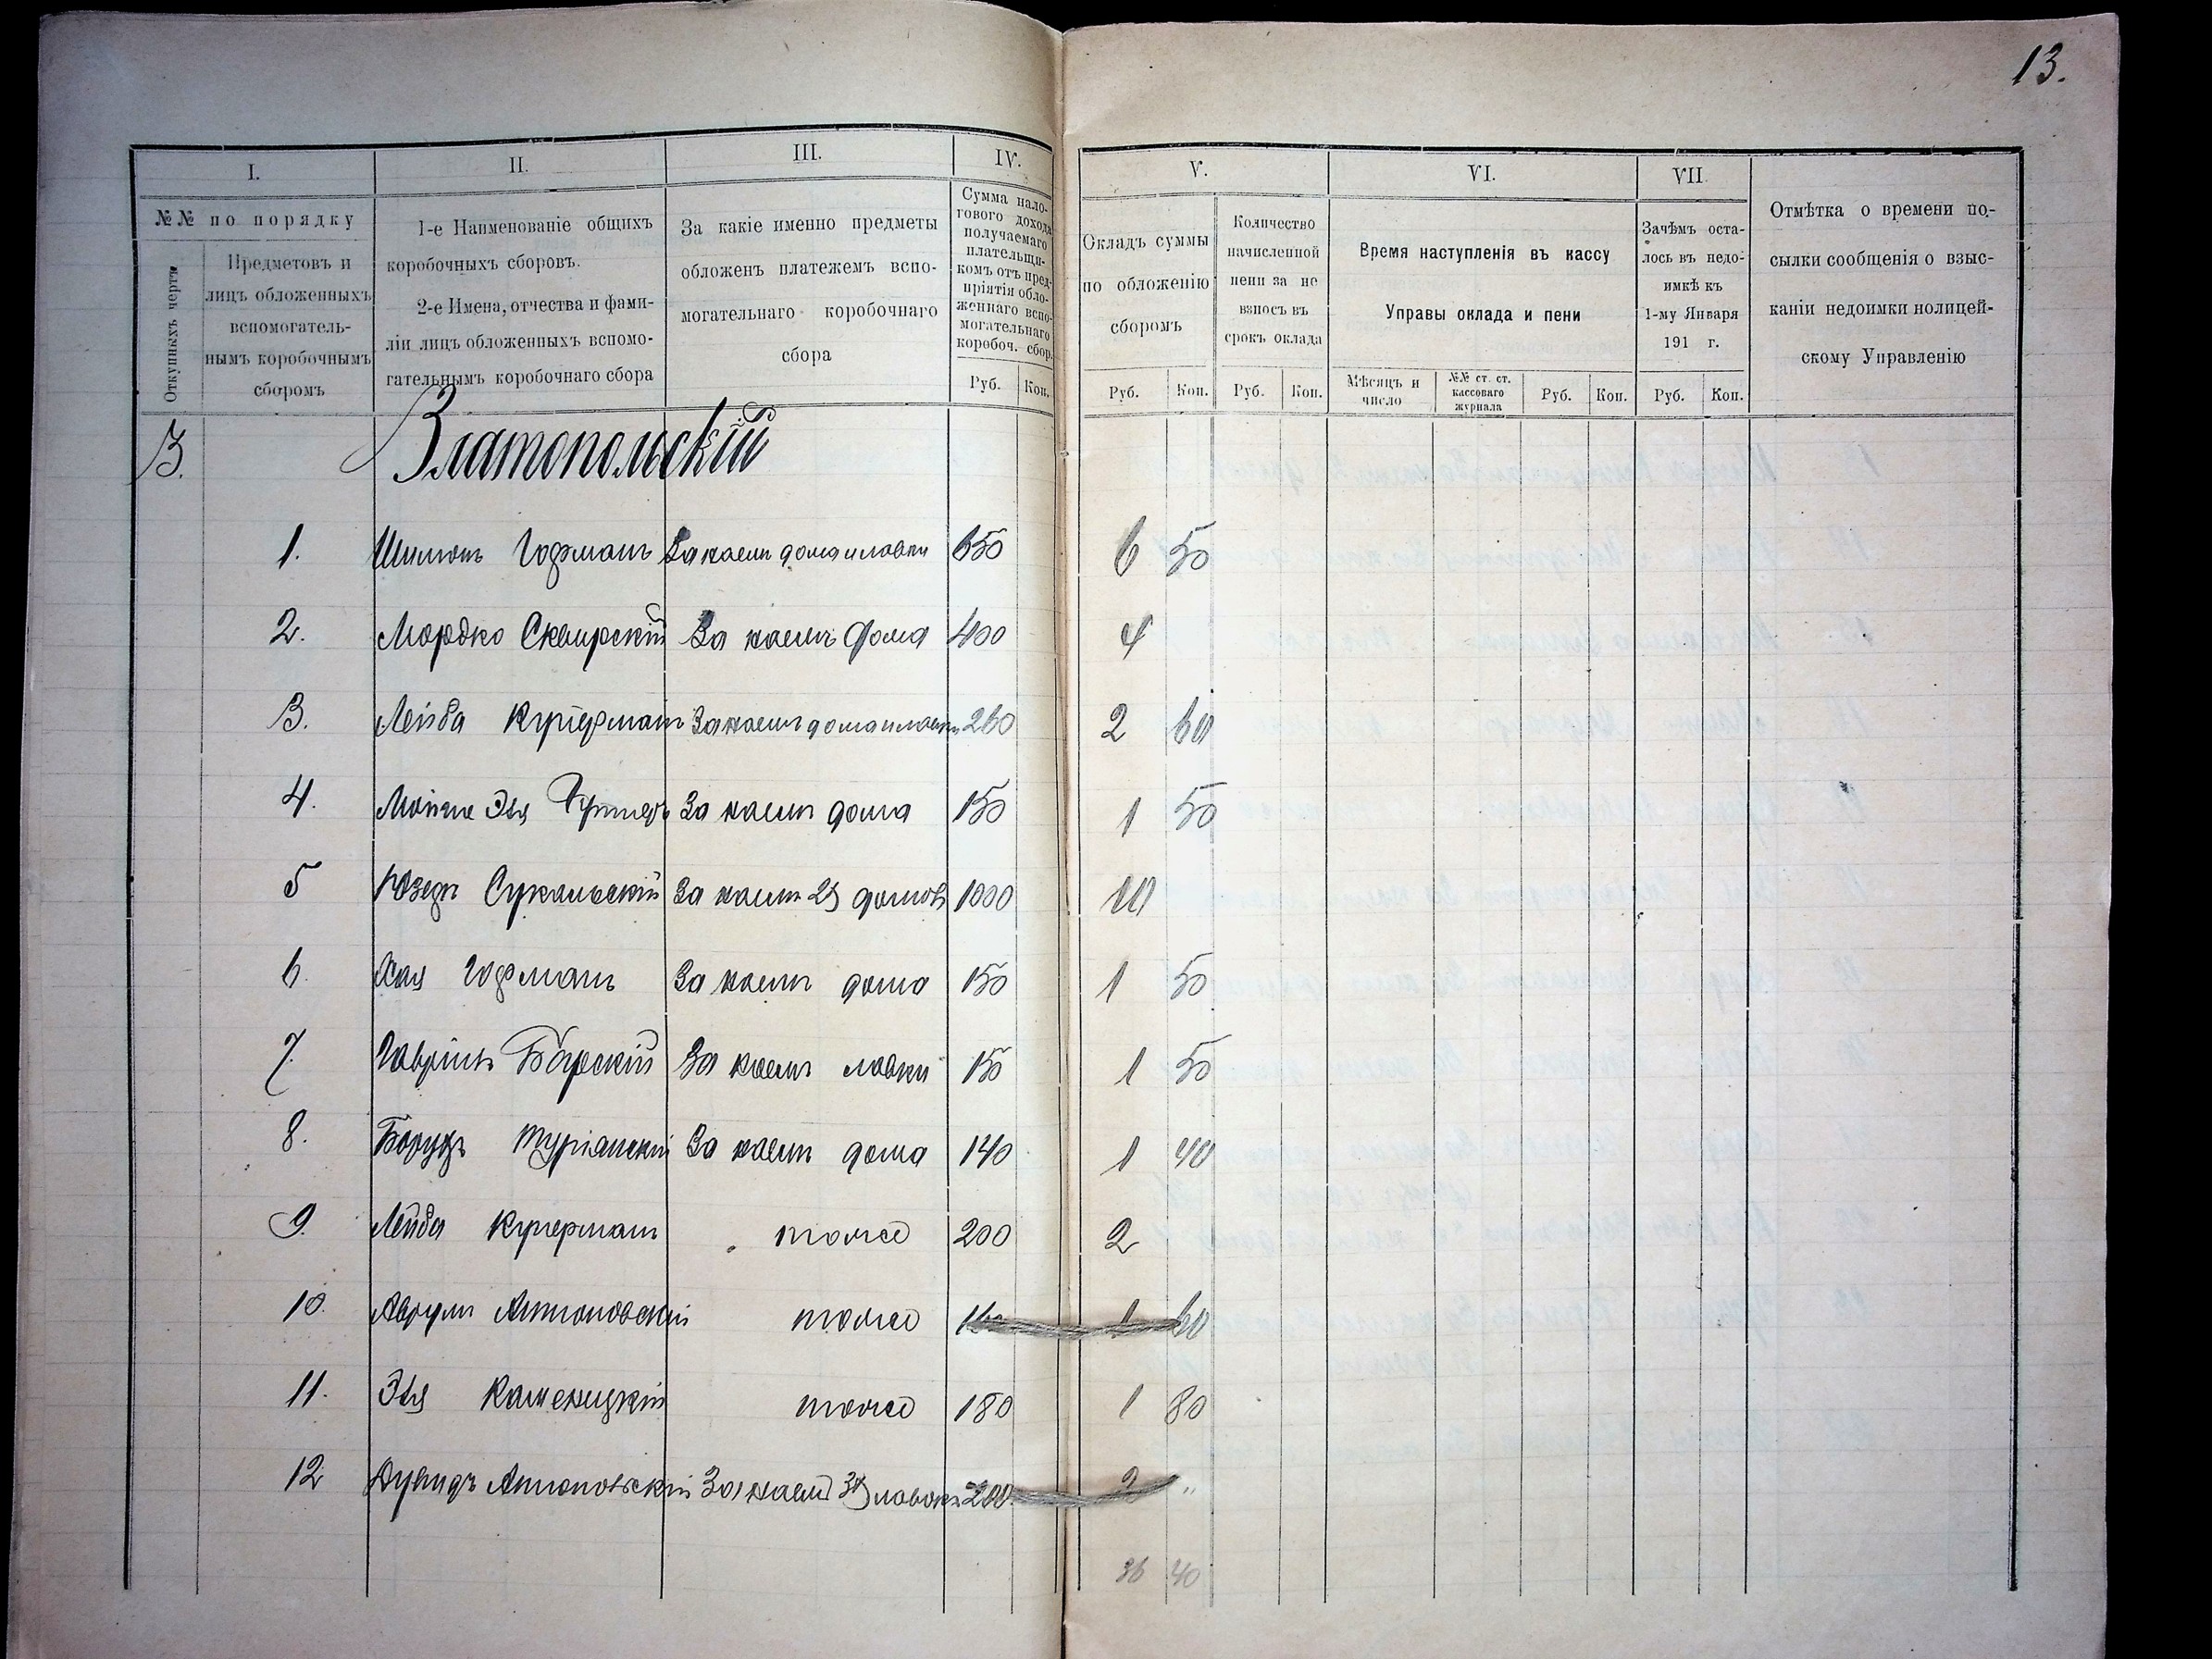 13.
I.
II.
III.
IV.
V.
VI.
VII.
№№ по порядку
Откупныхъ черт
Предметовъ и
лицъ обложенныхъ
вспомогатель-
нымъ коробочнымъ
сборомъ
1-е Наименованіе общихъ
коробочныхъ сборовъ.
2-е Имена, отчества и фами-
ліи лицъ обложенныхъ вспомо-
гательнымъ коробочнаго сбора
За какіе именно предметы
обложенъ платежемъ вспо-
могательнаго коробочнаго
сбора
Сумма нало-
говаго дохода
получаемаго
плательщи-
комъ отъ пред-
пріятія обло-
женнаго вспо-
могательнаго
коробоч. сбор.
Руб. Коп.
Окладъ суммы
по обложенію
сборомъ
Руб. Коп.
Количество
начисленной
пени за не
взносъ въ
срокъ оклада
Руб. Коп.
Время наступленія въ кассу
Управы оклада и пени
Мѣсяцъ и
число
№№ ст. ст.
кассоваго
журнала
Руб. Коп.
Зачѣмъ оста-
лось въ недо-
имкѣ къ
1-му Января
191 г.
Руб. Коп.
Отмѣтка о времени по-
сылки сообщенія о взыс-
каніи недоимки полицей-
скому Управленію
3. Златопольскій
1. Шимонъ Гофманъ За наемъ дома и лавки 650 6 50
2. Мордко Сквирскій За наемъ дома 400 4
3. Лейба Куперманъ За наемъ дома и лавки 260 2 60
4. Мойше Эля За наемъ дома 150 1 50
5 Юзефъ Сукальскій За наемъ 2х домовъ 1000 10
6. Хая Гофманъ За наемъ дома 150 1 50
7. Гавріилъ Борскій За наемъ лавки 150 1 50
8. Борухъ Туріанскій За наемъ дома 140 1 40
9. Лейба Куперманъ тоже 200 2
10. Аврумъ Антоновскій тоже 160 1 60
11. Эля Каменецкій тоже 180 1 80
12 Дувидъ Антоновскій За наемъ 3х лавокъ 200 2 "
36 40